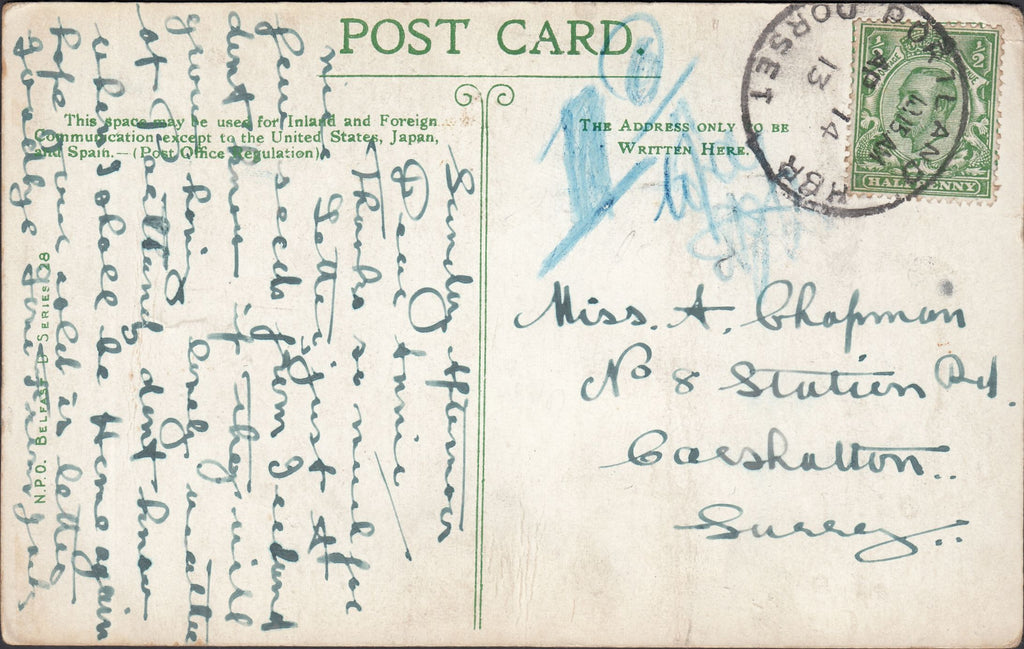 POST CARD.
This space may be used for Inland and Foreign
Communication except to the United States, Japan,
and Spain.—(Post Office Regulation).
THE ADDRESS ONLY TO BE
WRITTEN HERE.
HALFPENNY
½ ½
PORTLAND HBR
DORSET
10.15 AM
AP
13
14
Miss. A. Chapman
No 8 Station Rd.
Carshalton..
Surrey..
Sunday Afternoon
Dear Annie
Thanks so much for
nice Letter, just A
few seeds from I dont
dent know if they will
grow, having lovely weather
at Portland dont know
when shall be Home again
hope your cold is better
Goodbye
N.P.O. BELFAST D SERIES 28